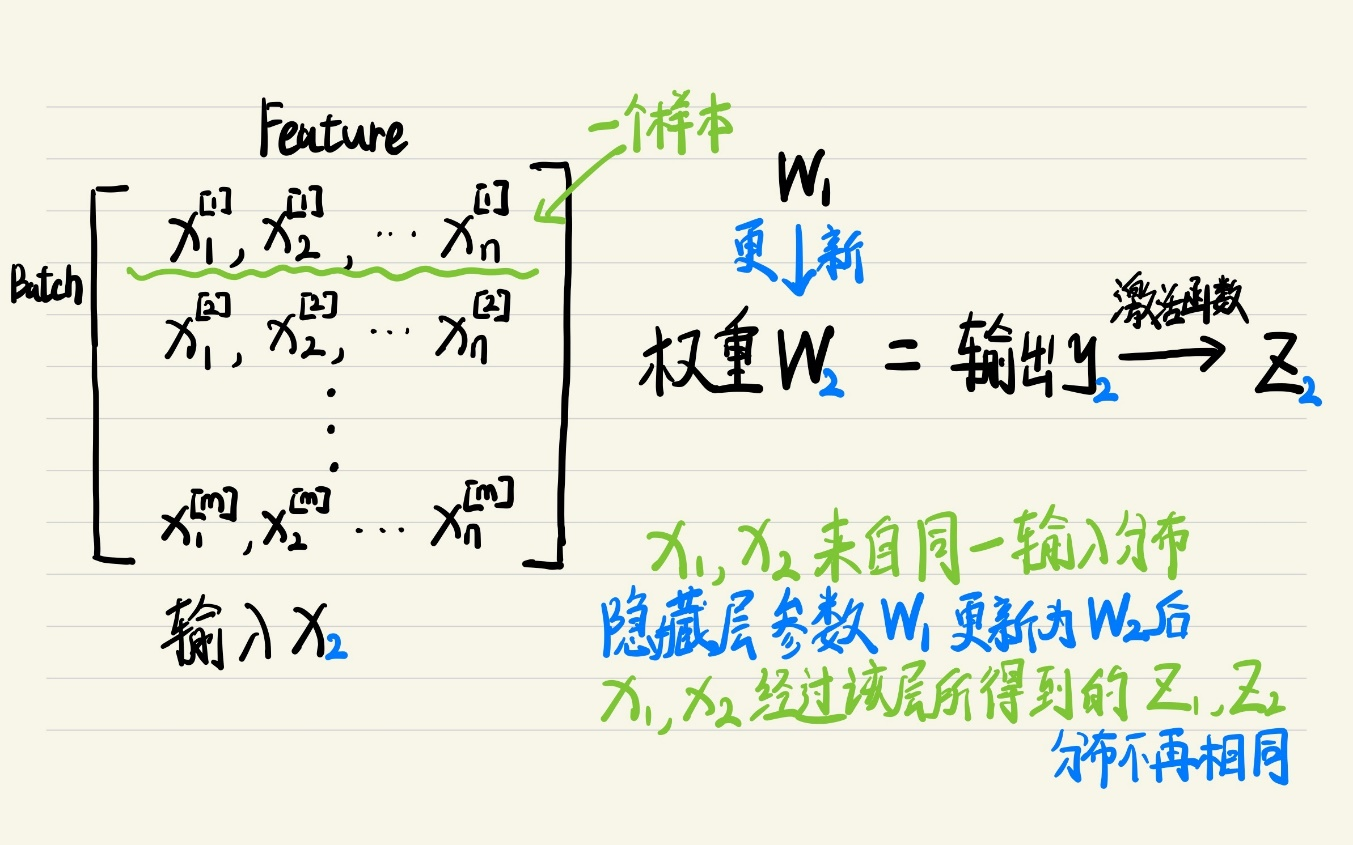 Feature
一个样本
Batch
x₁^[1], x₂^[1], ⋯ xₙ^[1]
x₁^[2], x₂^[2], ⋯ xₙ^[2]
⋮
x₁^[m], x₂^[m] ⋯ xₙ^[m]
输入 X₂
W₁
更 ↓ 新
权重 W₂ = 输出 y₂ ⟶ Z₂
激活函数
X₁, X₂ 来自同一输入分布
隐藏层参数 W₁ 更新为 W₂ 后
X₁, X₂ 经过该层所得到的 Z₁, Z₂
分布不再相同